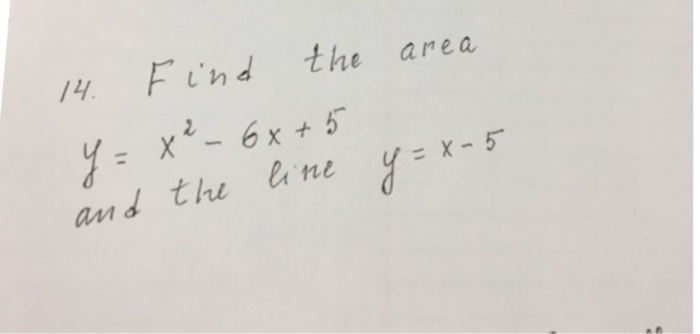 14. Find the area
y = x² - 6x + 5
and the line y = x - 5